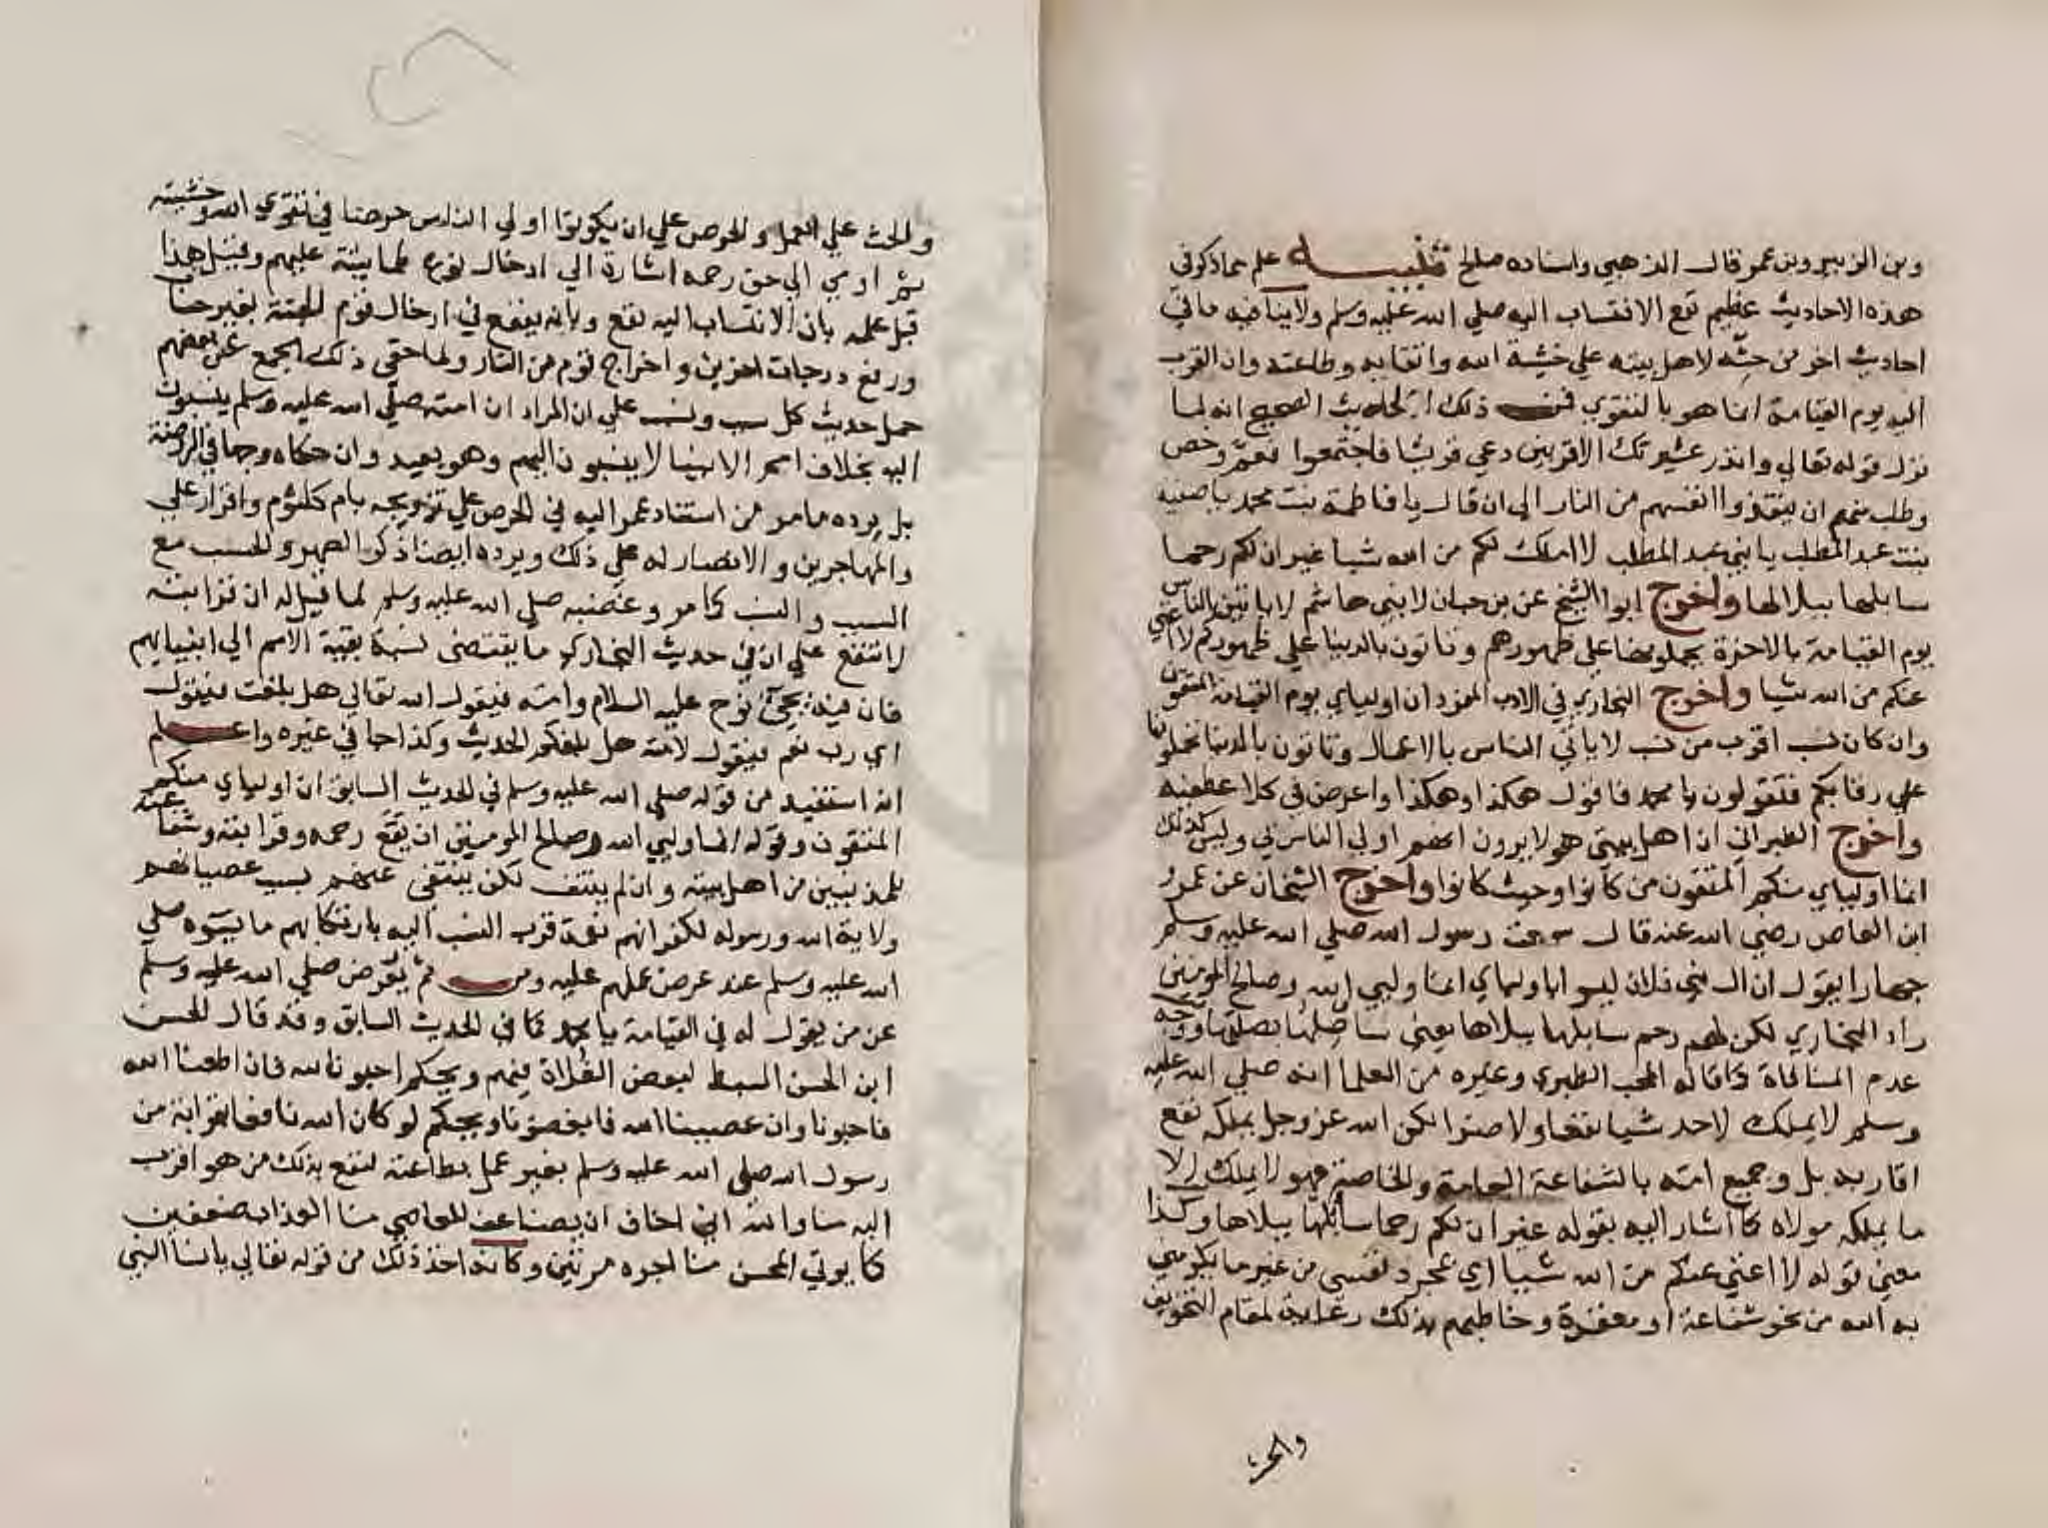 وبن الزبير وبن عمر قال الذهبي واسناده صالح تنبيه علم مما ذكر في
هذه الاحاديث عظيم نفع الانتساب اليه صلي الله عليه وسلم ولا ينافيه ما في
احاديث اخر من حثه لاهل بيته علي خشية الله واتقايه وطاعته وان القرب
اليه يوم القيامة انما هو بالتقوي فمن ذلك الحديث الصحيح انه لما
نزل قوله تعالي وانذر عشيرتك الاقربين دعي قريشا فاجتمعوا فعم وخص
وطلب منهم ان ينقذوا انفسهم من النار الى ان قال يا فاطمة بنت محمد يا صفية
بنت عبد المطلب يا بني عبد المطلب لا املك لكم من الله شيا غير ان لكم رحما
سابلها ببلالها واخرج ابوا الشيخ عن بن حبان لا بني هاشم لا ياتين الناس
يوم القيامة بالاخرة يحملونها علي ظهورهم وتاتون بالدنيا علي ظهوركم لا اغني
عنكم من الله شيا واخرج البخاري في الادب المفرد ان اوليائي يوم القيامة المتقون
وان كان نسب اقرب من نسب لا ياتي الناس بالاعمال وتاتون بالدنيا تحملونها
علي رقابكم فتقولون يا محمد فاقول هكذا وهكذا واعرض في كلا عطفيه
واخرج الطبراني ان اهل بيتي هولا يرون انهم اولي الناس بي وليس كذلك
انما اوليائي منكم المتقون من كانوا وحيث كانوا واخرج الشيخان عن عمرو
ابن العاص رضي الله عنه قال سمعت رسول الله صلي الله عليه وسلم
جهارا يقول ان ال بني فلان ليسوا باوليائي انما وليي الله وصالح المومنين
زاد البخاري لكن لهم رحم سابلها ببلاها يعني ساصلها بصلتها ووجه
عدم المنافاة كما قاله المحب الطبري وغيره من العلما انه صلي الله عليه
وسلم لا يملك لاحد شيا نفعا ولا ضرا لكن الله عز وجل يملكه نفع
اقاربه بل وجميع امته بالشفاعة العامة والخاصة فهو لا يملك الا
ما يملكه مولاه كما اشار اليه بقوله غير ان لكم رحما سابلها ببلاها وكذا
معني قوله لا اغني عنكم من الله شييا اي بمجرد نفسي من غير ما يكرمني
به الله من نحو شفاعة او مغفرة وخاطبهم بذلك رعاية لمقام التخويف
والحث
والحث علي العمل والحرص علي ان يكونوا اولي الناس حرصا في تقوي الله وخشيته
ثم اومي الي حق رحمه اشارة الي ادخال نوع طمانينة عليهم وقيل هذا
قبل علمه بان الانتساب اليه نفع وبانه يشفع في ادخال قوم الجنة بغير حساب
ورفع درجات اخرين واخراج قوم من النار ولما خفي ذلك الجمع عن بعضهم
حمل حديث كل سبب ونسب علي ان المراد ان امته صلي الله عليه وسلم ينسبون
اليه بخلاف امم الانبيا لا ينسبون اليهم وهو بعيد وان حكاه وجها في الروضة
بل يرده ما مر من استناد عمر اليه في الحرص علي تزويجه بام كلثوم واقرار علي
والمهاجرين والانصار له علي ذلك ويرده ايضا ذكر الصهر والحسب مع
السبب والنسب كما مر وغضبه صلي الله عليه وسلم لما قيل له ان قرابته
لا تنفع علي ان في حديث البخاري ما يقتضي نسبة بقية الامم الي انبيايهم
فان فيه يجيء نوح عليه السلام وامته فيقول الله تعالي هل بلغت فيقول
اي رب نعم فيقول لامته هل بلغكم الحديث وكذا جا في غيره واعلم
انه استفيد من قوله صلي الله عليه وسلم في الحديث السابق ان اوليائي منكم
المتقون وقوله انما وليي الله وصالح المومنين ان نفع رحمه وقرابته وشفاعته
للمذنبين من اهل بيته وان لم ينتف لكن ينتفي عنهم بسبب عصيانهم
ولاية الله ورسوله لكفرانهم نعمة قرب النسب اليه بارتكابهم ما يسوه صلي
الله عليه وسلم عند عرض عملهم عليه ومن ثم يعرض صلي الله عليه وسلم
عن من يقول له في القيامة يا محمد كما في الحديث السابق وقد قال الحسن
ابن الحسن السبط لبعض الغلاة فيهم ويحكم احبونا لله فان اطعنا الله
فاحبونا وان عصيينا الله فابغضونا ويحكم لو كان الله نافعا بقرابة من
رسول الله صلي الله عليه وسلم بغير عمل بطاعته لنفع بذلك من هو اقرب
اليه منا والله اني اخاف ان يضاعف للعاصي منا العذاب ضعفين
كما يوتي المحسن منا اجره مرتين وكانه اخذ ذلك من قوله تعالي يا نسا النبي